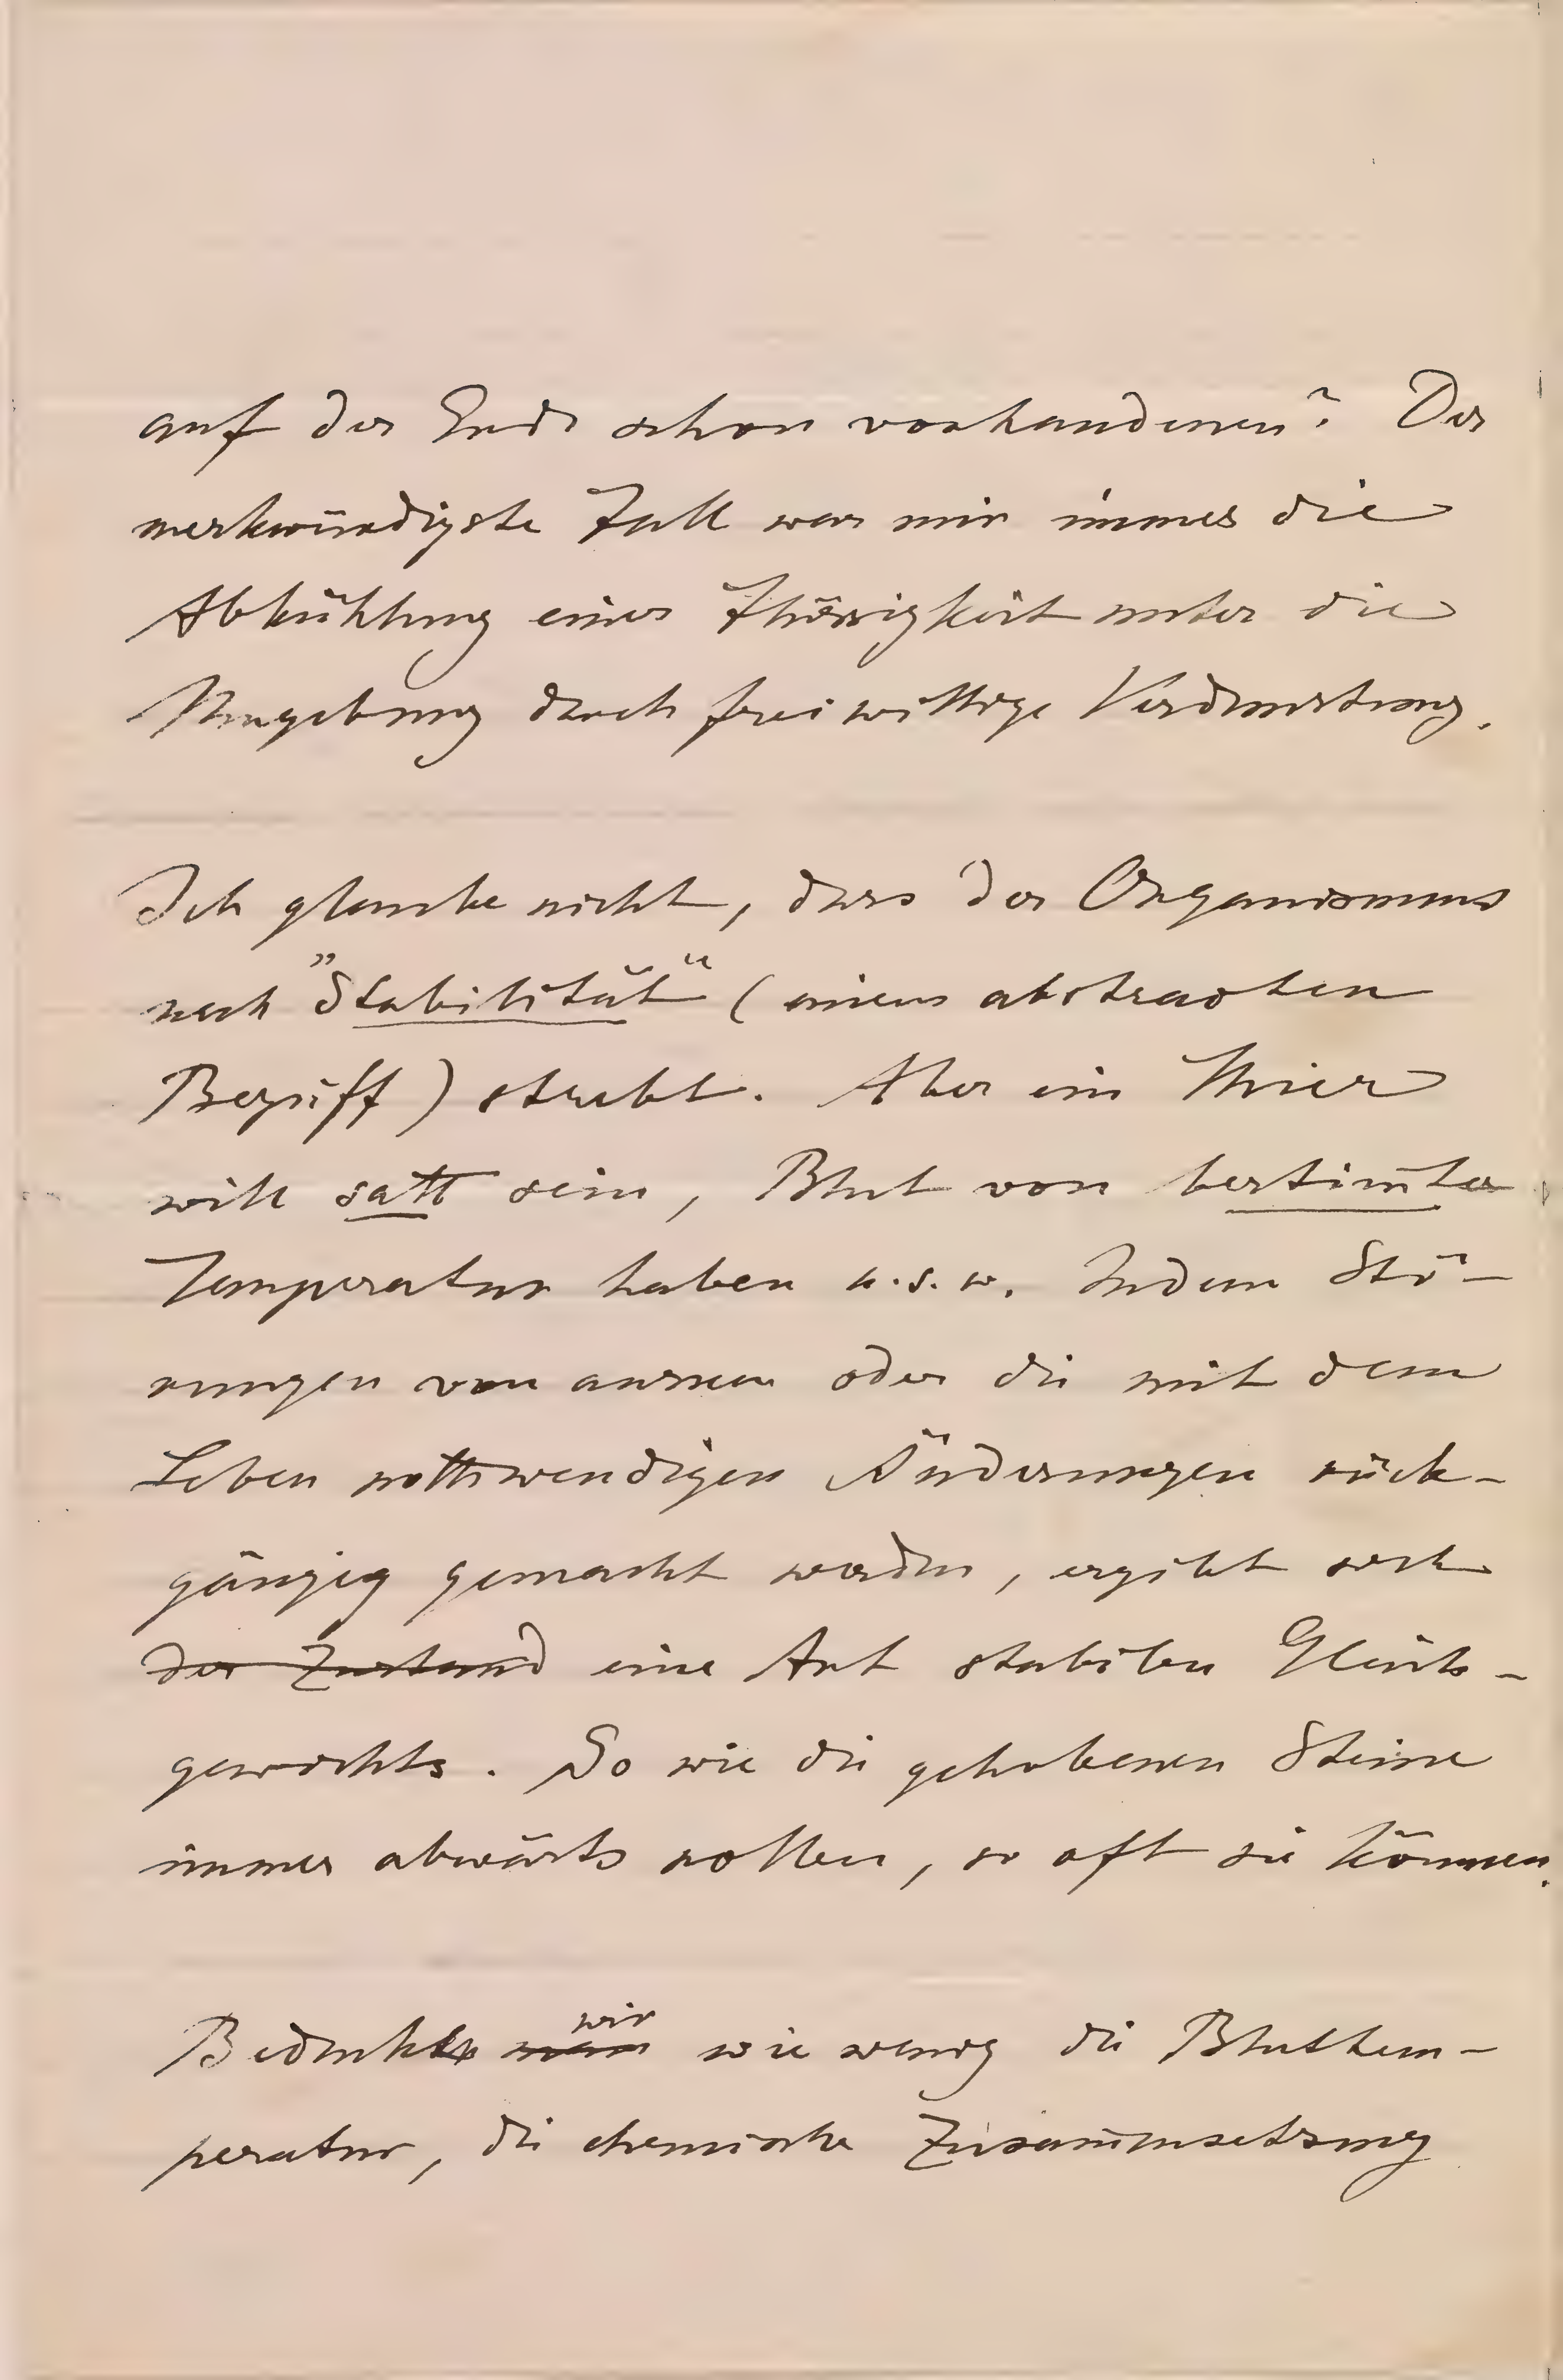 auf der Erde schon vorhandenen? Der
merkwürdigste Fall war mir immer die
Abkühlung einer Flüssigkeit unter die
Umgebung durch freiwillige Verdunstung.
Ich glaube nicht, dass der Organismus
nach "Stabilität" (einem abstracten
Begriff) strebt. Aber ein Thier
will satt sein, Blut von bestim̄ter
Temperatur haben u.s.w. Indem Stö-
rungen von aussen oder die mit dem
Leben nothwendigen Änderungen rück-
gängig gemacht werden, ergibt sich
der Zustand eine Art stabilen Gleich-
gewichts. So wie die gehobenen Steine
immer abwärts rollen, so oft sie können.
wir
Bedenkt man wie wenig die Bluttem-
peratur, die chemische Zusam̄ensetzung